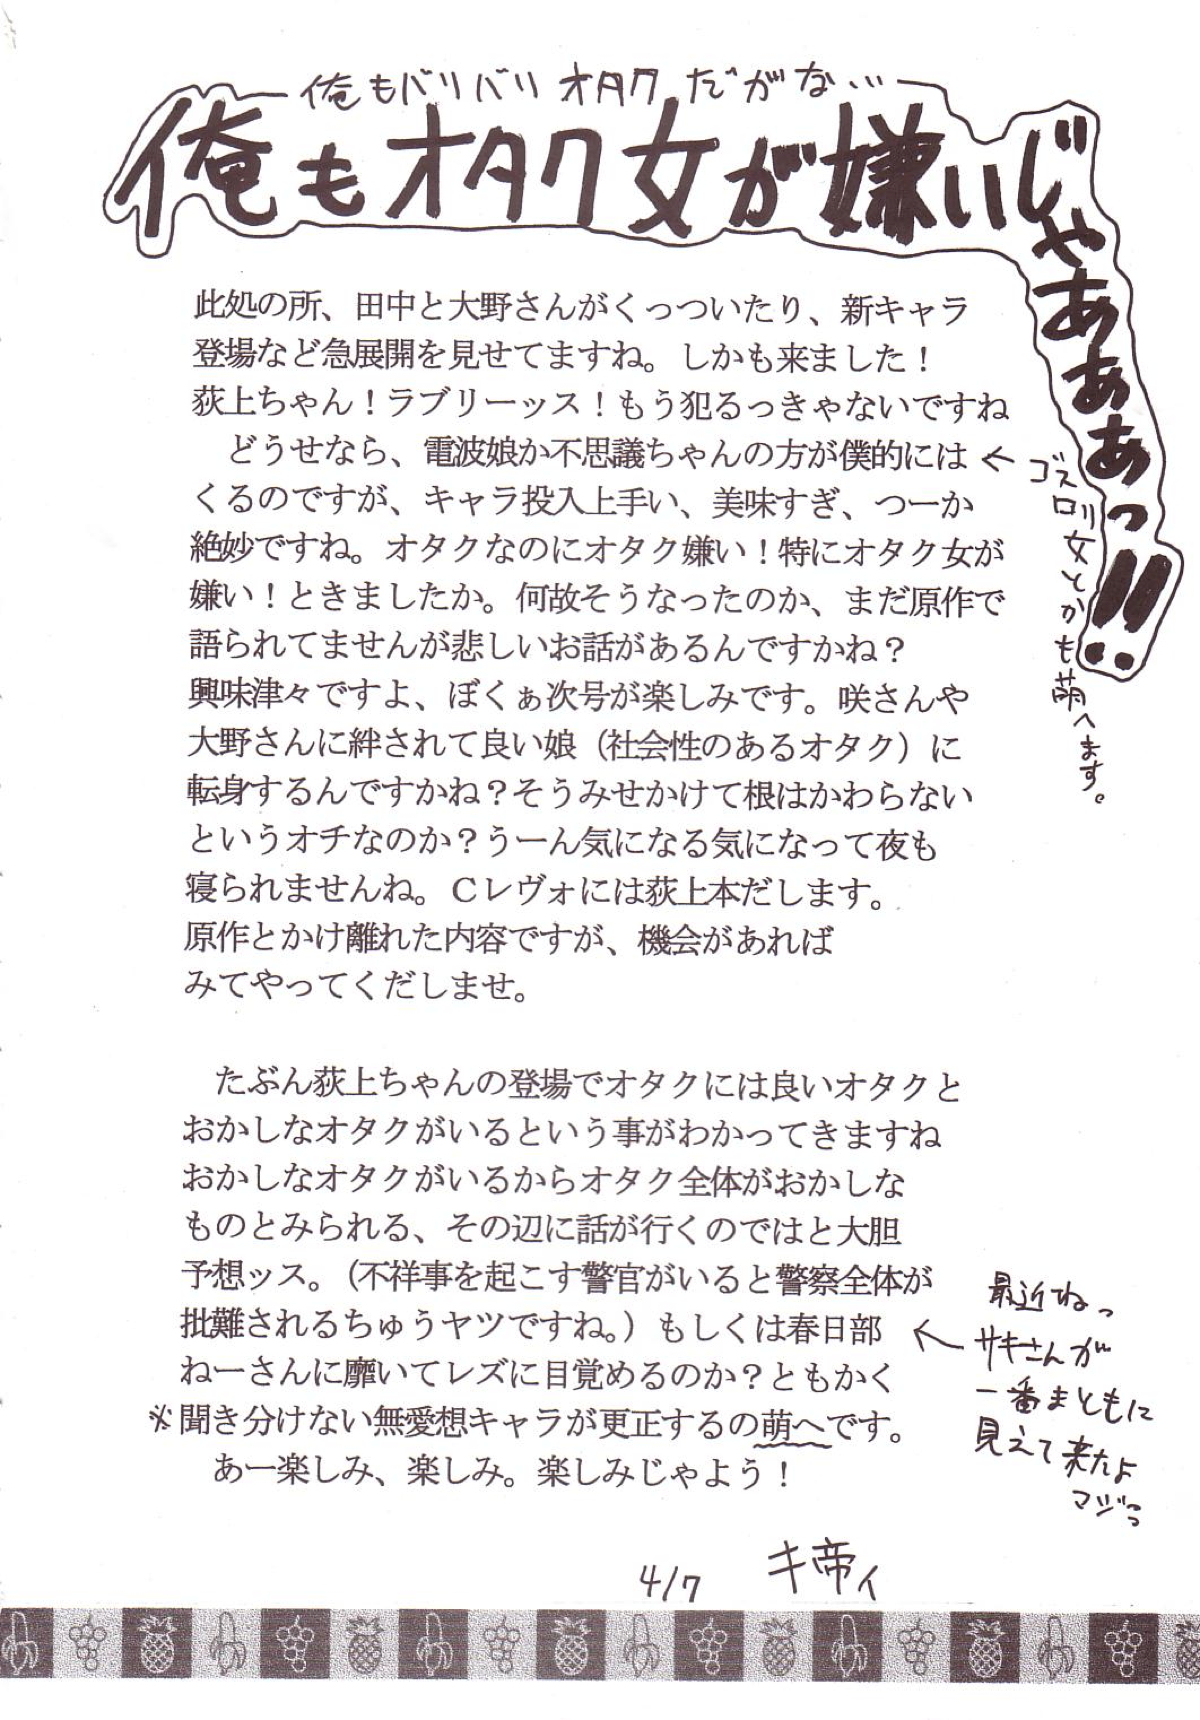 俺もバリバリオタクだがな…
俺もオタク女が嫌いじゃあああっ!!
此処の所、田中と大野さんがくっついたり、新キャラ
登場など急展開を見せてますね。しかも来ました！
荻上ちゃん！ラブリーッス！もう犯るっきゃないですね
どうせなら、電波娘か不思議ちゃんの方が僕的には
くるのですが、キャラ投入上手い、美味すぎ、つーか
絶妙ですね。オタクなのにオタク嫌い！特にオタク女が
嫌い！ときましたか。何故そうなったのか、まだ原作で
語られてませんが悲しいお話があるんですかね？
興味津々ですよ、ぼくぁ次号が楽しみです。咲さんや
大野さんに絆されて良い娘（社会性のあるオタク）に
転身するんですかね？そうみせかけて根はかわらない
というオチなのか？うーん気になる気になって夜も
寝られませんね。Ｃレヴォには荻上本だします。
原作とかけ離れた内容ですが、機会があれば
みてやってくだしませ。
←ゴスロリ女とかも萌へます。
たぶん荻上ちゃんの登場でオタクには良いオタクと
おかしなオタクがいるという事がわかってきますね
おかしなオタクがいるからオタク全体がおかしな
ものとみられる、その辺に話が行くのではと大胆
予想ッス。（不祥事を起こす警官がいると警察全体が
批難されるちゅうヤツですね。）もしくは春日部
ねーさんに靡いてレズに目覚めるのか？ともかく
※聞き分けない無愛想キャラが更正するの萌へです。
あー楽しみ、楽しみ。楽しみじゃよう！
←最近ねっ
サキさんが
一番まともに
見えて来たよ
マジっ
4/7 キ帝ィ